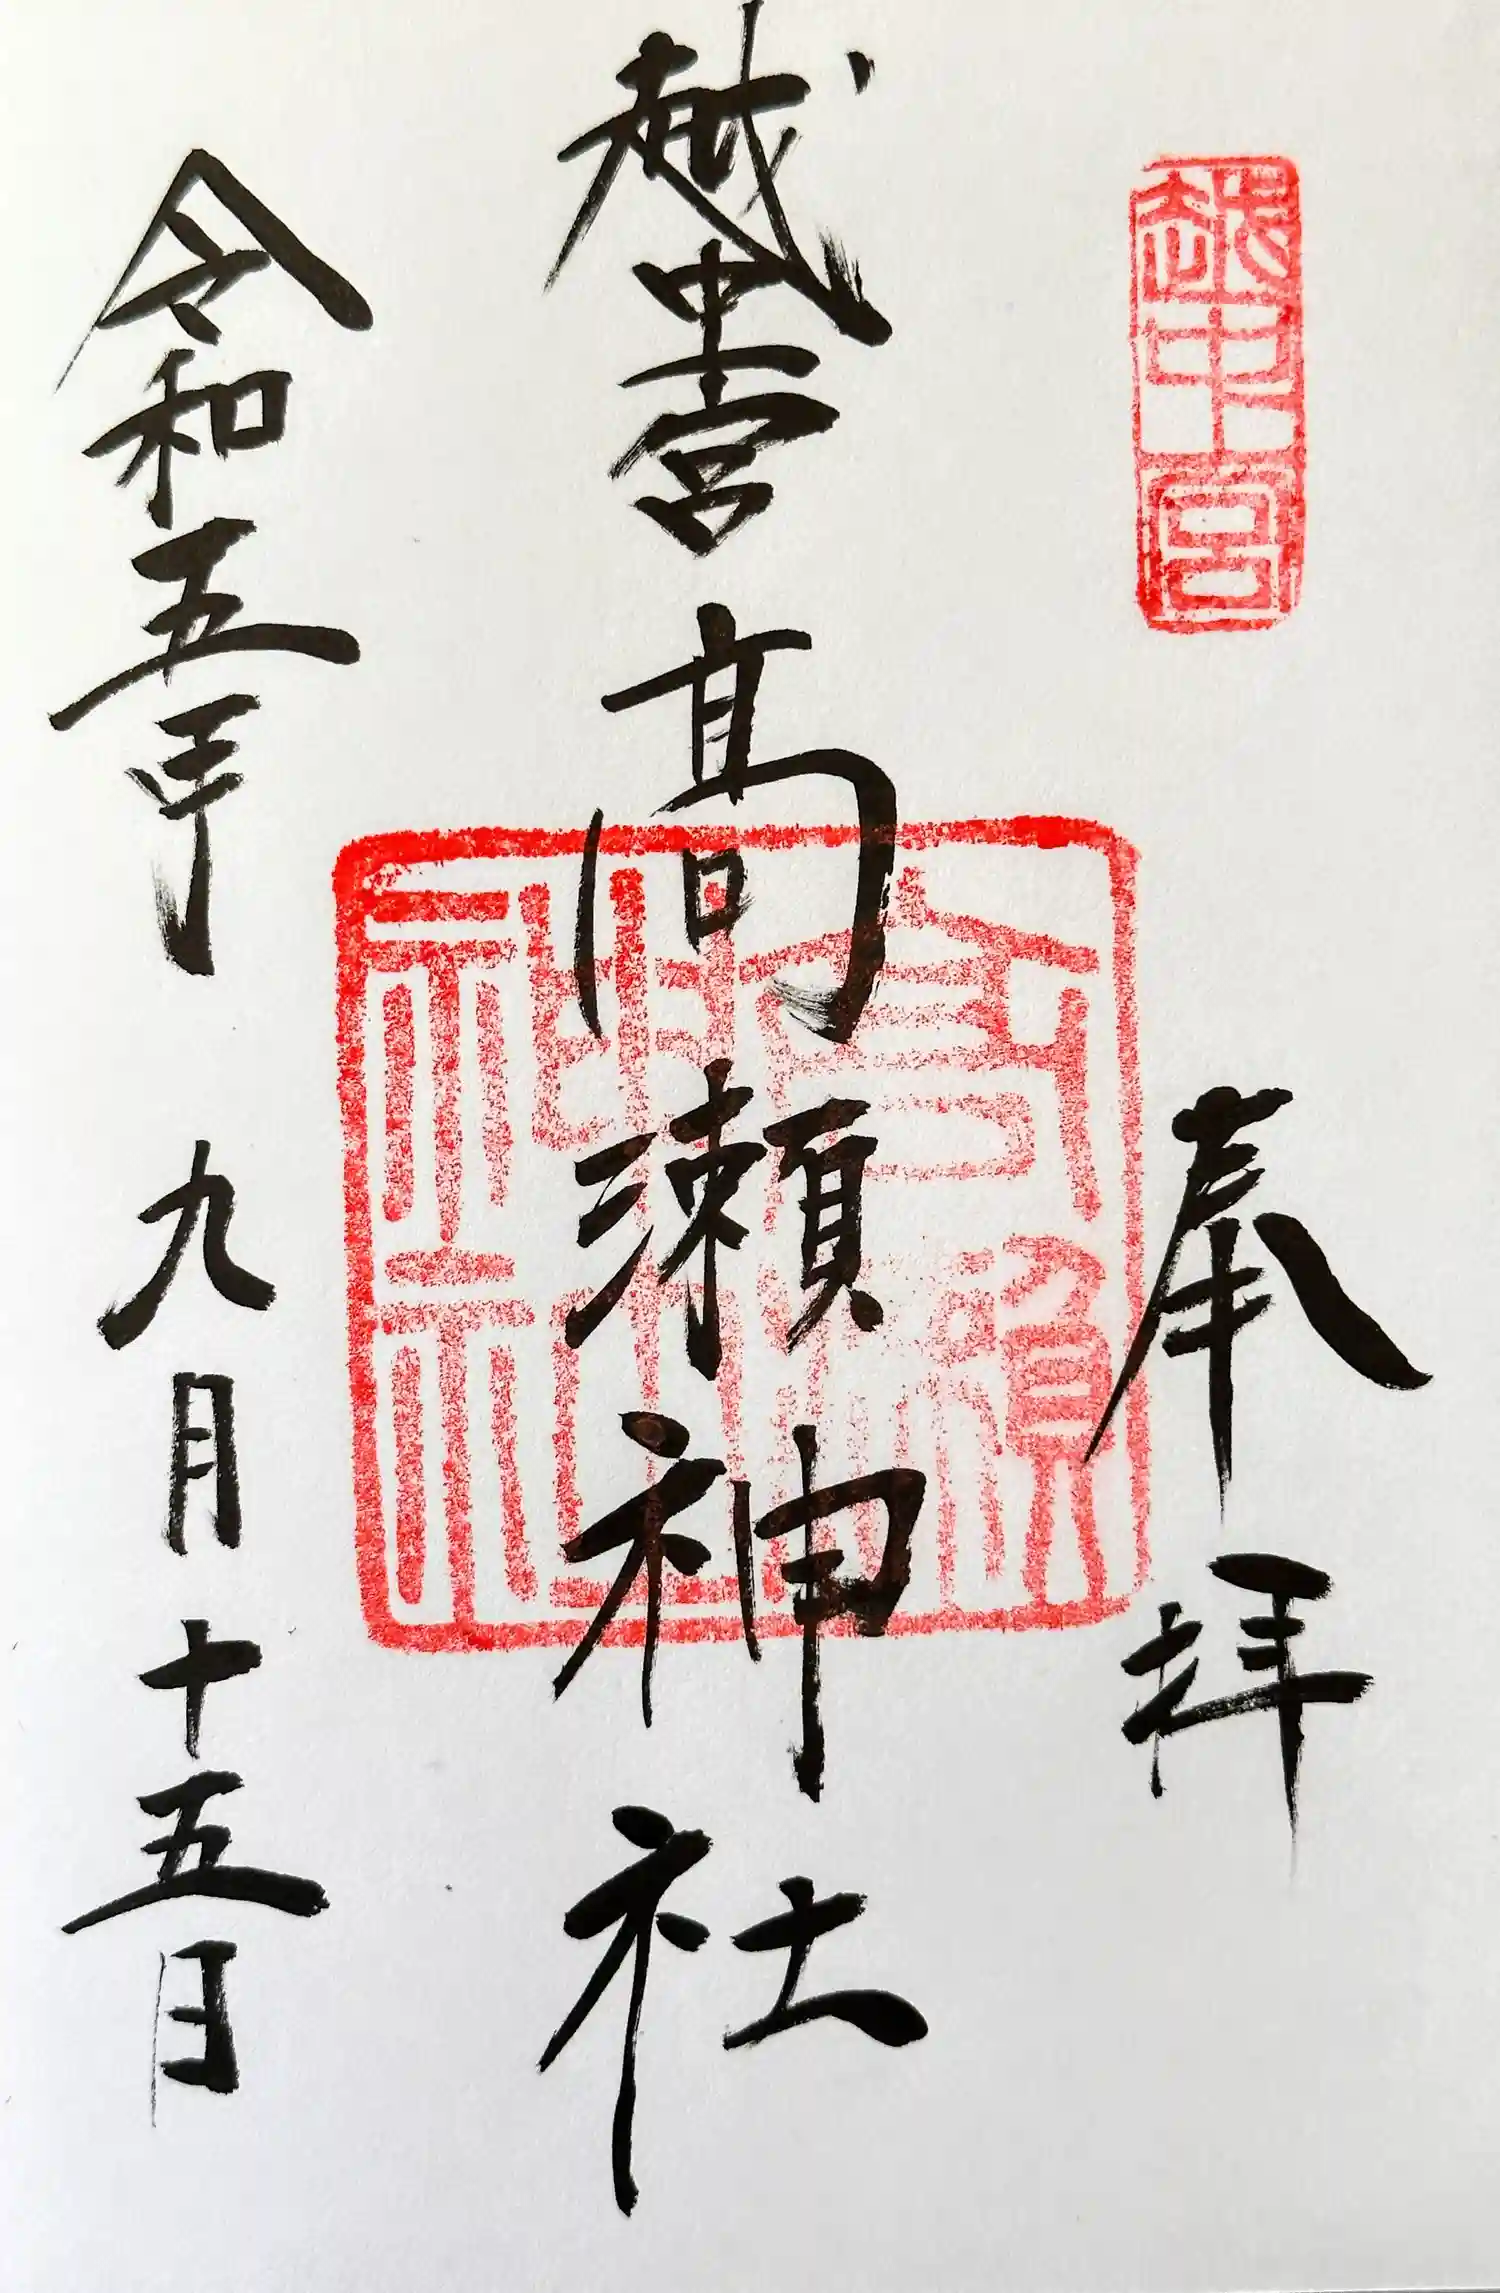 越中一宮
奉拝
越中一宮 髙瀬神社
高瀬神社
令和五年 九月十五日